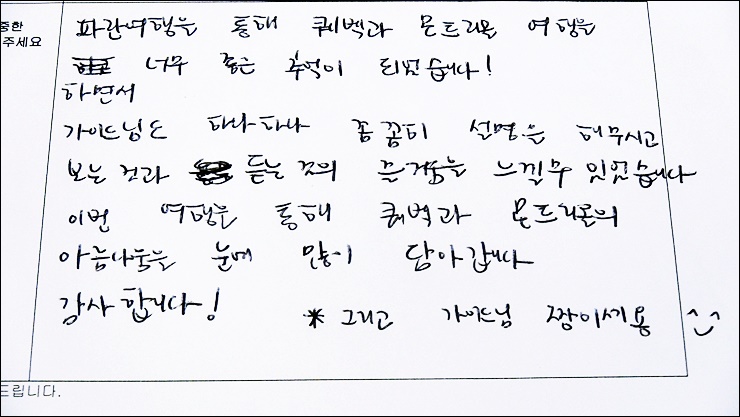 중한
주세요
파란여행을 통해 퀘벡과 몬트리올 여행을
너무 좋은 추억이 되었습니다!
하면서
가이드님도 하나하나 꼼꼼히 설명을 해주시고
보는 것과 듣는 것의 즐거움을 느낄수 있었습니다
이번 여행을 통해 퀘벡과 몬트리올의
아름다움을 눈에 많이 담아갑니다
감사합니다!
* 그리고 가이드님 짱이세용 ^‿^
드립니다.